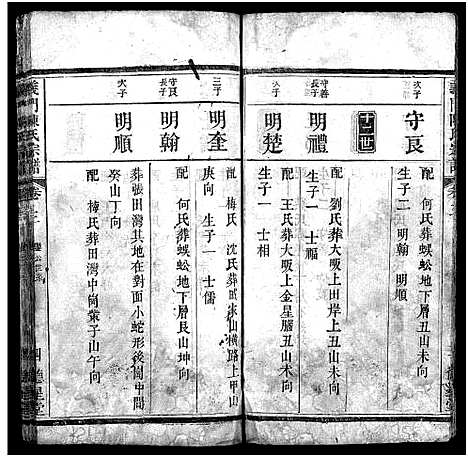 義門陳氏宗譜
次子
守良
配 何氏葬蜈蚣地下層丑山未向
生子二 明翰 明順
十二世
守善長子
明禮
配 劉氏葬大畈上田岸上丑山未向
生子一 士福
次子
明楚
配 王氏葬大畈上金星腦丑山未向
生子一 士相
三子
明奎
配 梅氏 沈氏葬 山橫路上甲山
庚向 生子一 士儒
守良長子
明翰
配 何氏葬蜈蚣地下層艮山坤向
次子
明順
葬張田灣其地在對面小蛇形後園中間
癸山丁向
配 梅氏葬田灣中崗業子山午向
義門陳氏宗譜
卷